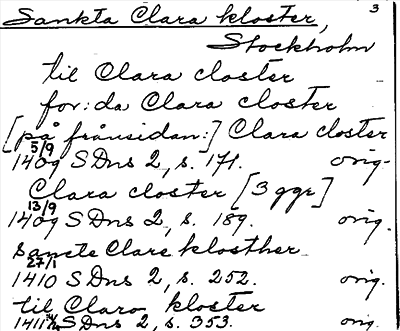 3
Sankta Clara kloster,
Stockholm
til Clara closter
for:da Clara closter
[på frånsidan:] Clara closter
5/9
1409 SDns 2, s. 171. orig.
Clara closter [3 ggr]
13/9
1409 SDns 2, s. 189. orig.
Sancte Clare klosther
27/1
1410 SDns 2, s. 252. orig.
til Clara kloster
1411 SDns 2, s. 353. orig.